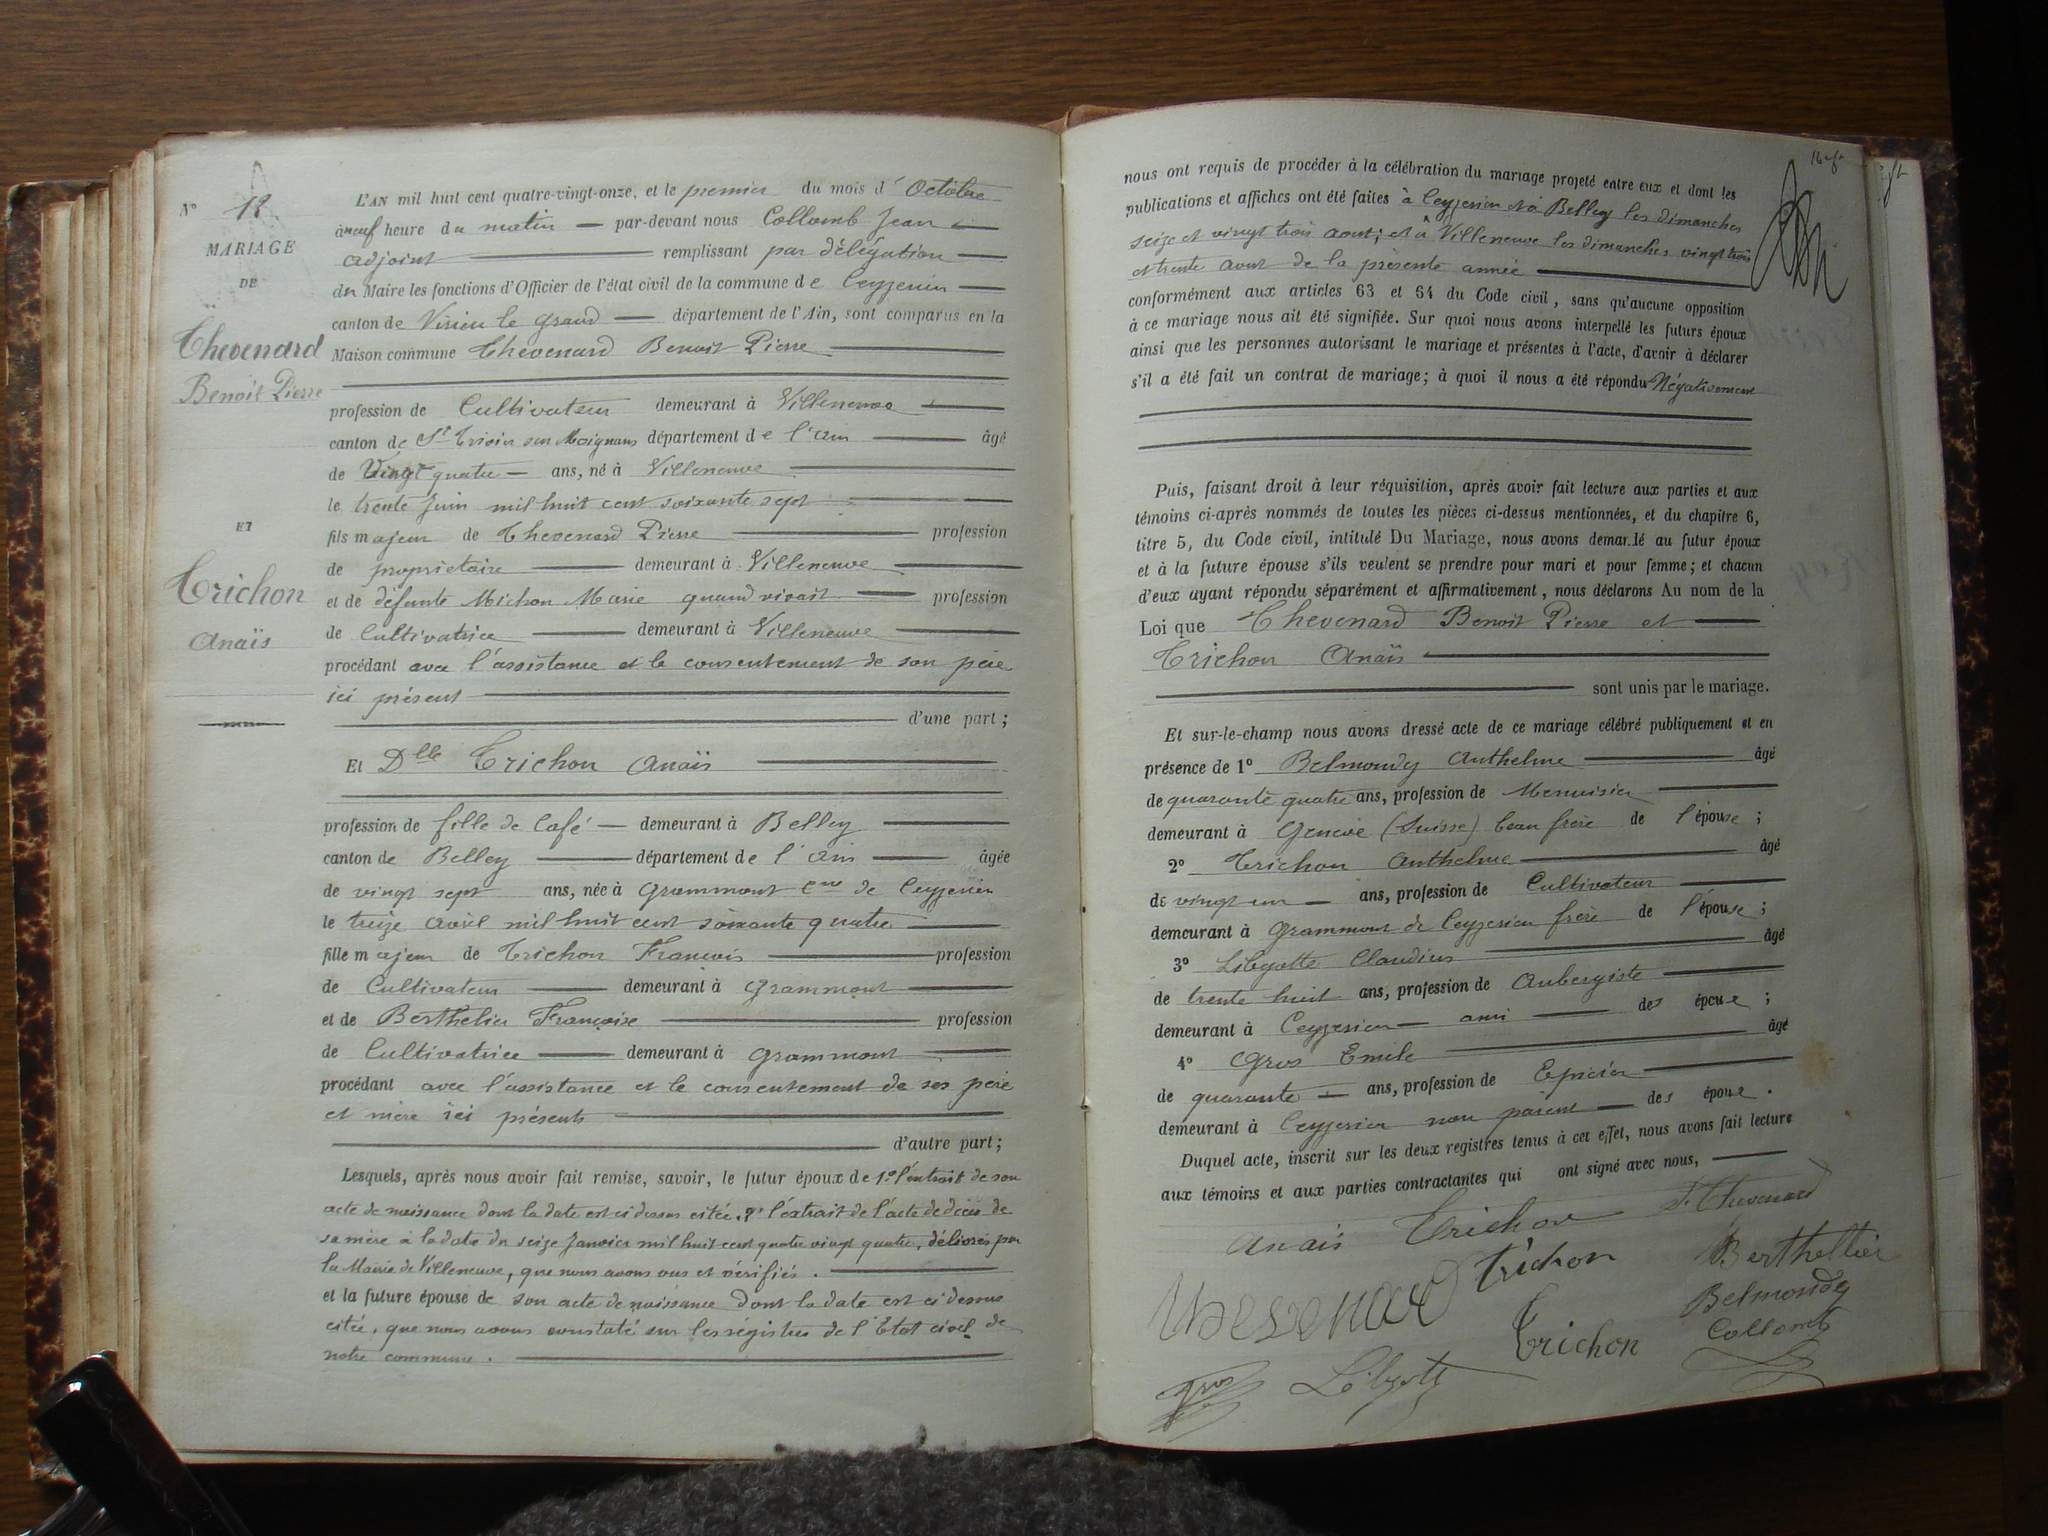 N° 12
MARIAGE
DE
Thevenard
Benoit Pierre
ET
Trichon
Anaïs
L'AN mil huit cent quatre-vingt-onze, et le premier du mois d'Octobre
à neuf heure du matin par-devant nous Collomb Jean
adjoint remplissant par délégation
du Maire les fonctions d'Officier de l'état civil de la commune de Ceyzerieu
canton de Virieu le grand département de l'Ain, sont comparus en la
Maison commune Thevenard Benoit Pierre
profession de Cultivateur demeurant à Villeneuve
canton de St Trivier sur Moignans département de l'Ain âgé
de Vingt quatre ans, né à Villeneuve
le trente Juin mil huit cent soixante sept
fils majeur de Thevenard Pierre profession
de propriétaire demeurant à Villeneuve
et de défunte Michon Marie quand vivait profession
de Cultivatrice demeurant à Villeneuve
procédant avec l'assistance et le consentement de son père
ici présent
d'une part ;
Et Dlle Trichon Anaïs
profession de fille de Café demeurant à Belley
canton de Belley département de l'Ain âgée
de vingt sept ans, née à Grammont Cne de Ceyzerieu
le treize avril mil huit cent soixante quatre
fille majeur de Trichon François profession
de Cultivateur demeurant à Grammont
et de Berthelier Françoise profession
de Cultivatrice demeurant à Grammont
procédant avec l'assistance et le consentement de ses père
et mère ici présents
d'autre part ;
Lesquels, après nous avoir fait remise, savoir, le futur époux de 1° l'extrait de son
acte de naissance dont la date est ci dessus citée, 2° l'extrait de l'acte de décès de
sa mère à la date du seize Janvier mil huit cent quatre vingt quatre, délivrés par
la Mairie de Villeneuve, que nous avons vus et vérifiés.
et la future épouse de son acte de naissance dont la date est ci dessus
citée, que nous avons constaté sur les régistres de l'Etat civil de
notre commune.
nous ont requis de procéder à la célébration du mariage projeté entre eux et dont les
publications et affiches ont été faites à Ceyzerieu et à Belley les dimanches
seize et vingt trois aout ; et à Villeneuve les dimanches vingt trois
et trente aout de la présente année
conformément aux articles 63 et 64 du Code civil, sans qu'aucune opposition
à ce mariage nous ait été signifiée. Sur quoi nous avons interpellé les futurs époux
ainsi que les personnes autorisant le mariage et présentes à l'acte, d'avoir à déclarer
s'il a été fait un contrat de mariage ; à quoi il nous a été répondu Négativement
Puis, faisant droit à leur réquisition, après avoir fait lecture aux parties et aux
témoins ci-après nommés de toutes les pièces ci-dessus mentionnées, et du chapitre 6,
titre 5, du Code civil, intitulé Du Mariage, nous avons demandé au futur époux
et à la future épouse s'ils veulent se prendre pour mari et pour femme ; et chacun
d'eux ayant répondu séparément et affirmativement, nous déclarons Au nom de la
Loi que Thevenard Benoit Pierre et
Trichon Anaïs
sont unis par le mariage.
Et sur-le-champ nous avons dressé acte de ce mariage célébré publiquement et en
présence de 1° Belmondy Anthelme âgé
de quarante quatre ans, profession de Menuisier
demeurant à Genève (Suisse) beau frère de l'épouse ;
2° Trichon Anthelme âgé
de vingt un ans, profession de Cultivateur
demeurant à Grammont de Ceyzerieu frère de l'épouse ;
3° Libgotte Claudius âgé
de trente huit ans, profession de Aubergiste
demeurant à Ceyzerieu ami des épouse ;
4° Gros Emile âgé
de quarante ans, profession de Epicier
demeurant à Ceyzerieu non parent des épouse.
Duquel acte, inscrit sur les deux registres tenus à cet effet, nous avons fait lecture
aux témoins et aux parties contractantes qui ont signé avec nous,
Anaïs Trichon P. Thevenard
Thevenard trichon Berthellier
Belmondy
Trichon Collomb
Gros Libgott